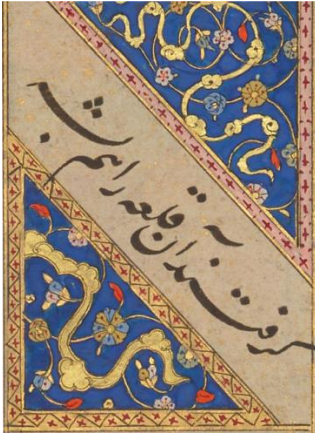 گرفتند آن قلعه را هم بشب